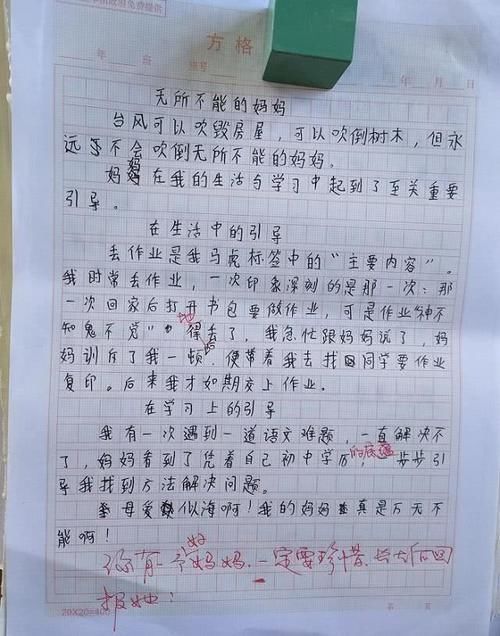 方格
年 班 年 月 日
无所不能的妈妈
台风可以吹毁房屋，可以吹倒树木，但永
远不会吹倒无所不能的妈妈。
妈妈在我的生活与学习中起到了至关重要
引导。
在生活中的引导
丢作业是我马虎标签中的“主要内容”。
我时常丢作业，一次印象深刻的是那一次：那
一次回家后打开书包要做作业，可是作业“神不
知鬼不觉”地得丢了，我急忙跟妈妈说了，妈
妈训斥了我一顿后，便带着我去找同学要作业
复印。后来我才如期交上作业。
在学习上的引导
我有一次遇到一道语文难题，一直解决不
了，妈妈看到了凭着自己初中学历的底蕴，一步步引
导我找到方法解决问题。
母爱似海啊！我的妈妈真是万无不
能啊！
你有一个好妈妈，一定要珍惜，长大后回
报她！
20X20=400